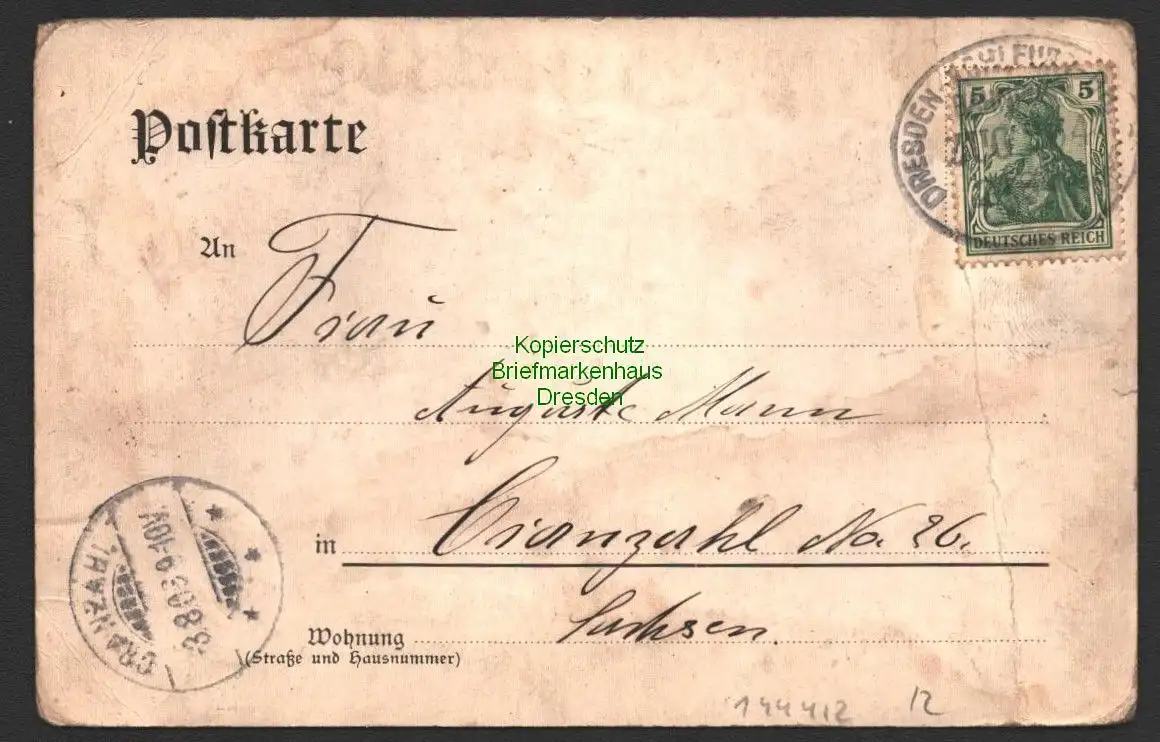 Postkarte
DRESDEN
5 5
DEUTSCHES REICH
An Frau
Kopierschutz
Briefmarkenhaus
Dresden
Auguste Mann
in Cranzahl No. 26.
Sachsen.
Wohnung
(Straße und Hausnummer)
CRANZAHL
3.8.03.9-10V.
144412 12